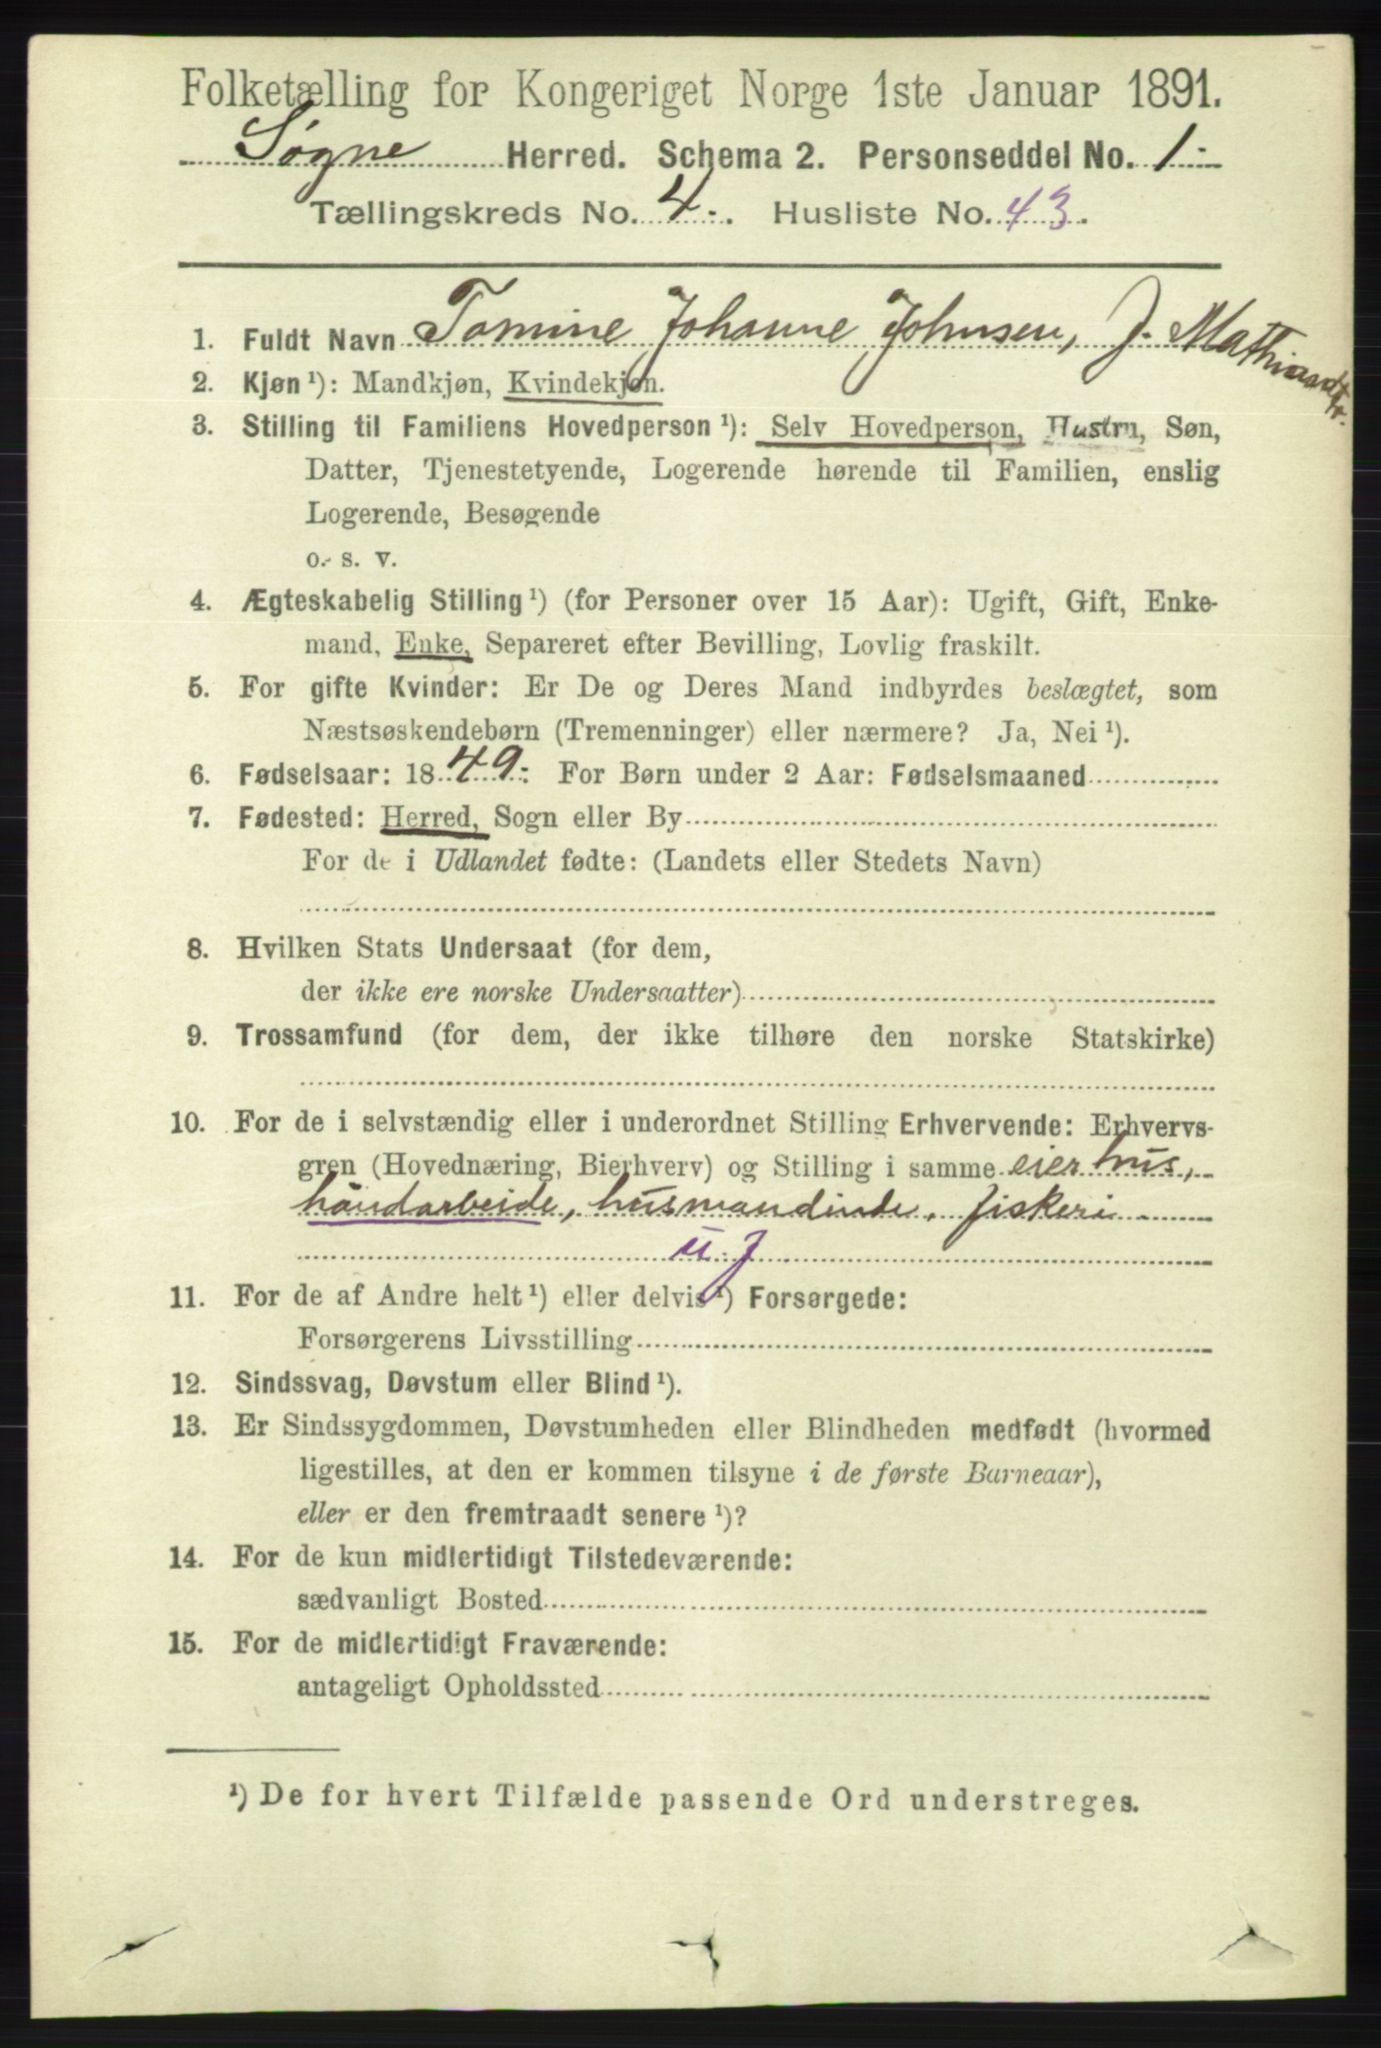 Folketælling for Kongeriget Norge 1ste Januar 1891.
Søgne Herred. Schema 2. Personseddel No. 1.-
Tællingskreds No. 4.-. Husliste No. 43.
1. Fuldt Navn Tomine Johanne Johnsen, J. Mathisendtr.
2. Kjøn¹): Mandkjøn, Kvindekjøn.
3. Stilling til Familiens Hovedperson¹): Selv Hovedperson, Hustru, Søn,
Datter, Tjenestetyende, Logerende hørende til Familien, enslig
Logerende, Besøgende
o. s. v.
4. Ægteskabelig Stilling¹) (for Personer over 15 Aar): Ugift, Gift, Enke-
mand, Enke, Separeret efter Bevilling, Lovlig fraskilt.
5. For gifte Kvinder: Er De og Deres Mand indbyrdes beslægtet, som
Næstsøskendebørn (Tremenninger) eller nærmere? Ja, Nei¹).
6. Fødselsaar: 1849. For Børn under 2 Aar: Fødselsmaaned
7. Fødested: Herred, Sogn eller By
For de i Udlandet fødte: (Landets eller Stedets Navn)
8. Hvilken Stats Undersaat (for dem,
der ikke ere norske Undersaatter)
9. Trossamfund (for dem, der ikke tilhøre den norske Statskirke)
10. For de i selvstændig eller i underordnet Stilling Erhvervende: Erhvervs-
gren (Hovednæring, Bierhverv) og Stilling i samme eier hus,
håndarbeide, husmandinde, fiskeri
u. J
11. For de af Andre helt¹) eller delvis¹) Forsørgede:
Forsørgerens Livsstilling
12. Sindssvag, Døvstum eller Blind¹).
13. Er Sindssygdommen, Døvstumheden eller Blindheden medfødt (hvormed
ligestilles, at den er kommen tilsyne i de første Barneaar),
eller er den fremtraadt senere¹)?
14. For de kun midlertidigt Tilstedeværende:
sædvanligt Bosted
15. For de midlertidigt Fraværende:
antageligt Opholdssted
¹) De for hvert Tilfælde passende Ord understreges.